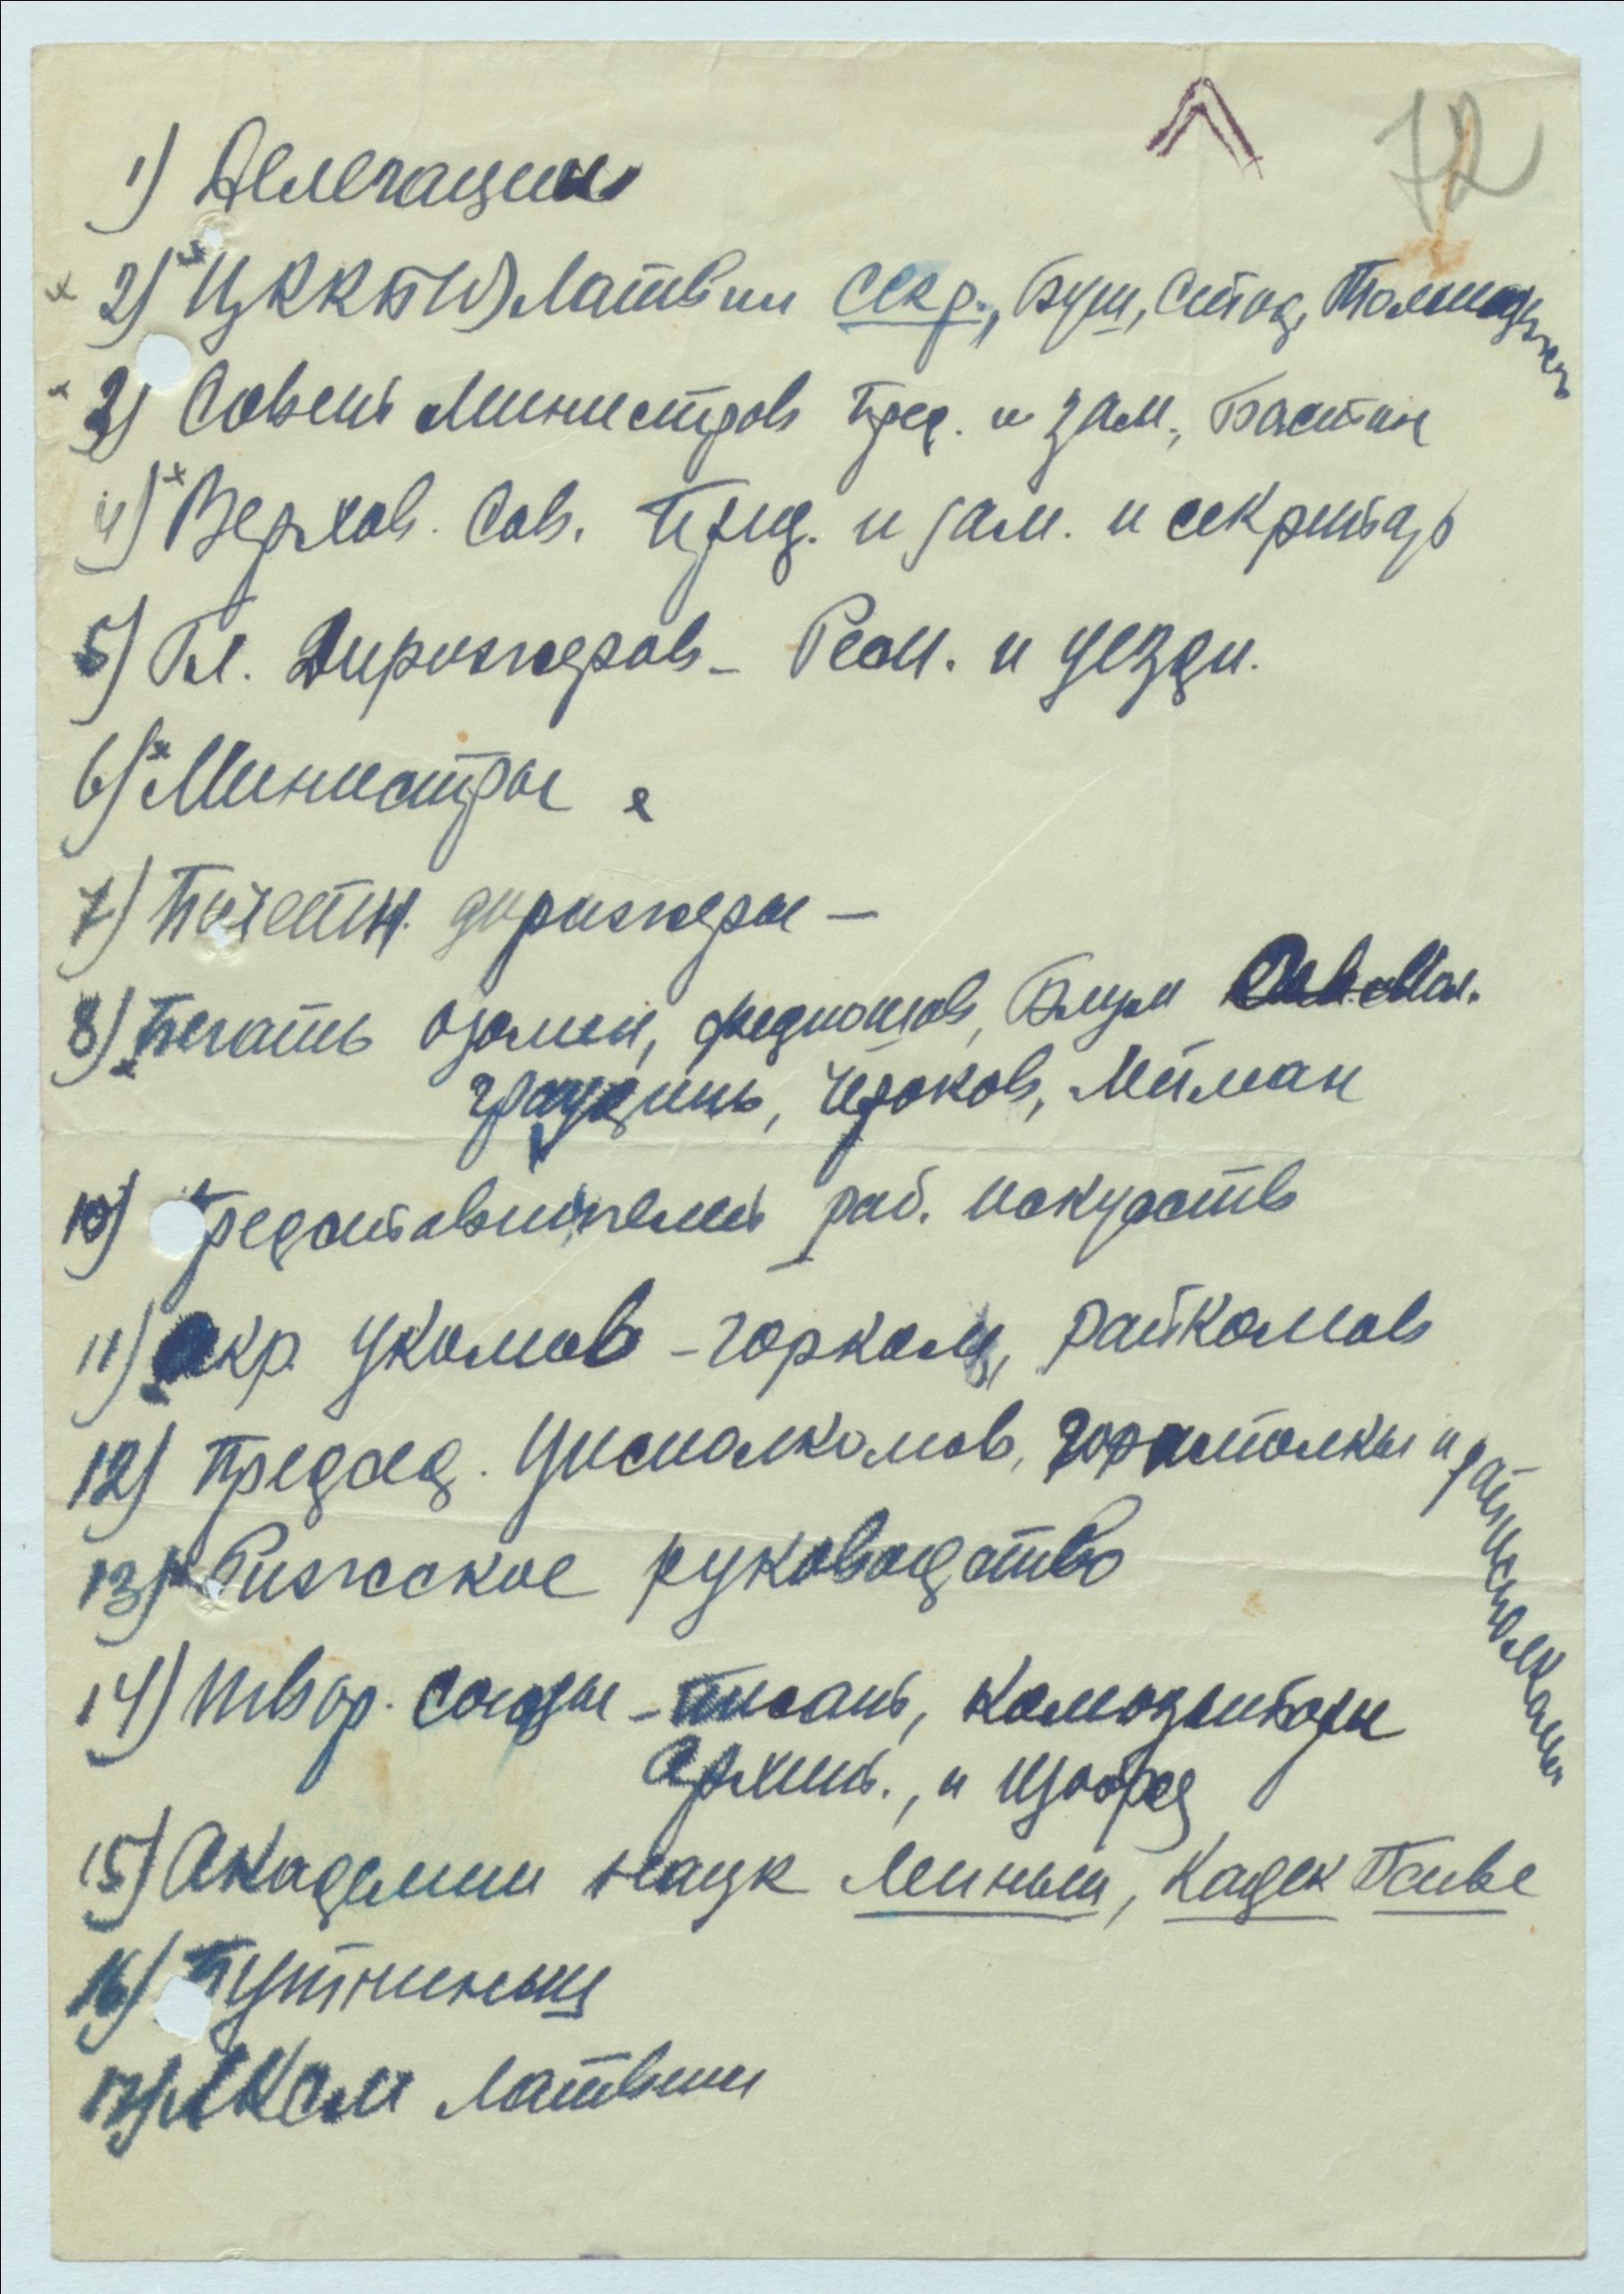 72
1) Делегации
2) ЦККП(б) Латвии секр., Буш, Стоц,
3) Совет Министров пред. и зам., Бастин
4) Верхов. Сов. През. и зам. и секретарь
5) Гл. Дирижеров - Респ. и уездн.
6) Министры
7) Почетн. дирижеры —
8) Печать Озолин, Федюнов, Блум
Граудинь, Чероков, Мейман
10) Представителей раб. искусств
11) Секр. укомов - горком, райкомов
12) Председ. уисполкомов, горисполкомы и райисполкомы
13) Рижское руководство
14) твор. союзы - писат, композиторы
Архит., и изобраз
15) Академии наук Лейниш, Кадек Пейве
16) Путниныш
17) ЛКСМ Латвии